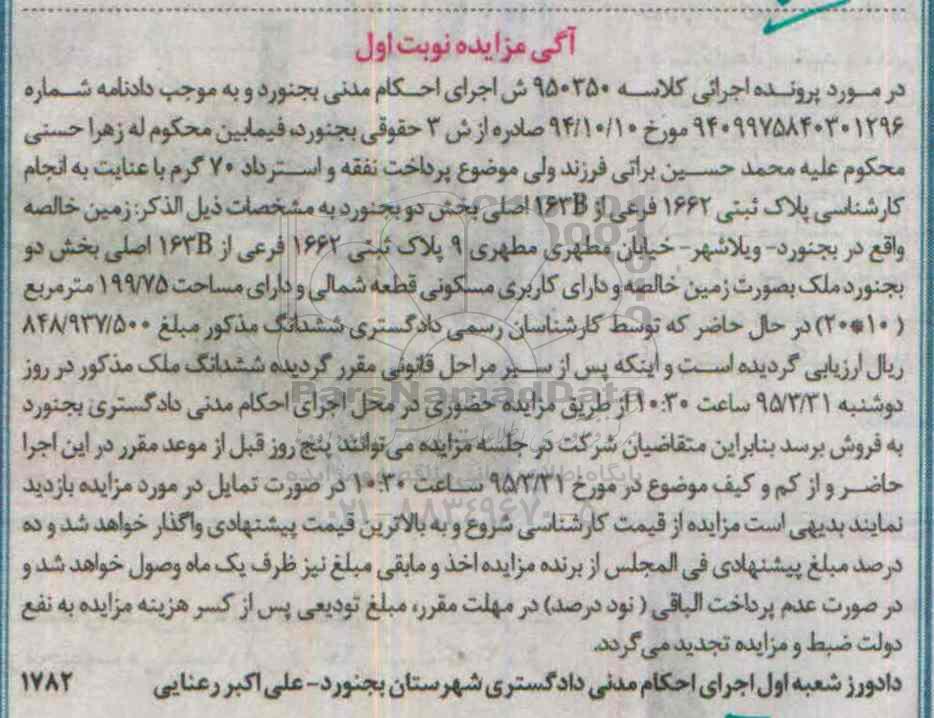 آگی مزایده نوبت اول
در مورد پرونده اجرائی کلاسه ۹۵۰۳۵۰ ش اجرای احکام مدنی بجنورد و به موجب دادنامه شماره
۹۴۰۹۹۷۵۸۴۰۳۰۱۲۹۶ مورخ ۹۴/۱۰/۱۰ صادره از ش ۳ حقوقی بجنورد، فیمابین محکوم له زهرا حسنی
محکوم علیه محمد حسین براتی فرزند ولی موضوع پرداخت نفقه و استرداد ۷۰ گرم با عنایت به انجام
کارشناسی پلاک ثبتی ۱۶۶۲ فرعی از ۱۶۳B اصلی بخش دو بجنورد به مشخصات ذیل الذکر: زمین خالصه
واقع در بجنورد- ویلاشهر- خیابان مطهری مطهری ۹ پلاک ثبتی ۱۶۶۲ فرعی از ۱۶۳B اصلی بخش دو
بجنورد ملک بصورت زمین خالصه و دارای کاربری مسکونی قطعه شمالی و دارای مساحت ۱۹۹/۷۵ مترمربع
(۲۰*۱۰) در حال حاضر که توسط کارشناسان رسمی دادگستری ششدانگ مذکور مبلغ ۸۴۸/۹۳۷/۵۰۰
ریال ارزیابی گردیده است و اینکه پس از سیر مراحل قانونی مقرر گردیده ششدانگ ملک مذکور در روز
دوشنبه ۹۵/۳/۳۱ ساعت ۱۰:۳۰ از طریق مزایده حضوری در محل اجرای احکام مدنی دادگستری بجنورد
به فروش برسد بنابراین متقاضیان شرکت در جلسه مزایده می‌توانند پنج روز قبل از موعد مقرر در این اجرا
حاضر و از کم و کیف موضوع در مورخ ۹۵/۳/۳۱ ساعت ۱۰:۳۰ در صورت تمایل در مورد مزایده بازدید
نمایند بدیهی است مزایده از قیمت کارشناسی شروع و به بالاترین قیمت پیشنهادی واگذار خواهد شد و ده
درصد مبلغ پیشنهادی فی المجلس از برنده مزایده اخذ و مابقی مبلغ نیز ظرف یک ماه وصول خواهد شد و
در صورت عدم پرداخت الباقی (نود درصد) در مهلت مقرر، مبلغ تودیعی پس از کسر هزینه مزایده به نفع
دولت ضبط و مزایده تجدید می‌گردد.
دادورز شعبه اول اجرای احکام مدنی دادگستری شهرستان بجنورد- علی اکبر رعنایی ۱۷۸۲
ParsNamadData
۰۲۱-۸۸۳۴۹۶۷۰-۵